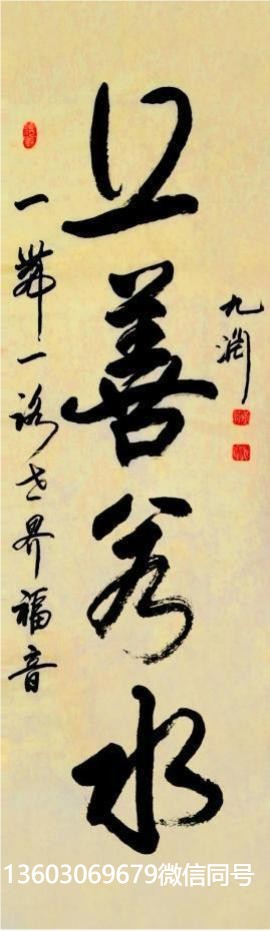 九渊
上善若水
一帶一路世界福音
13603069679微信同号